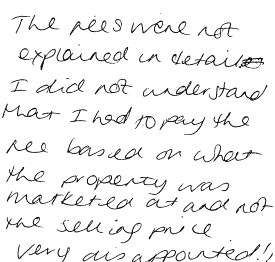 The fees were not
explained in detail
I did not understand
that I had to pay the
fee based on what
the property was
marketed at and not
the selling price
very disappointed!!